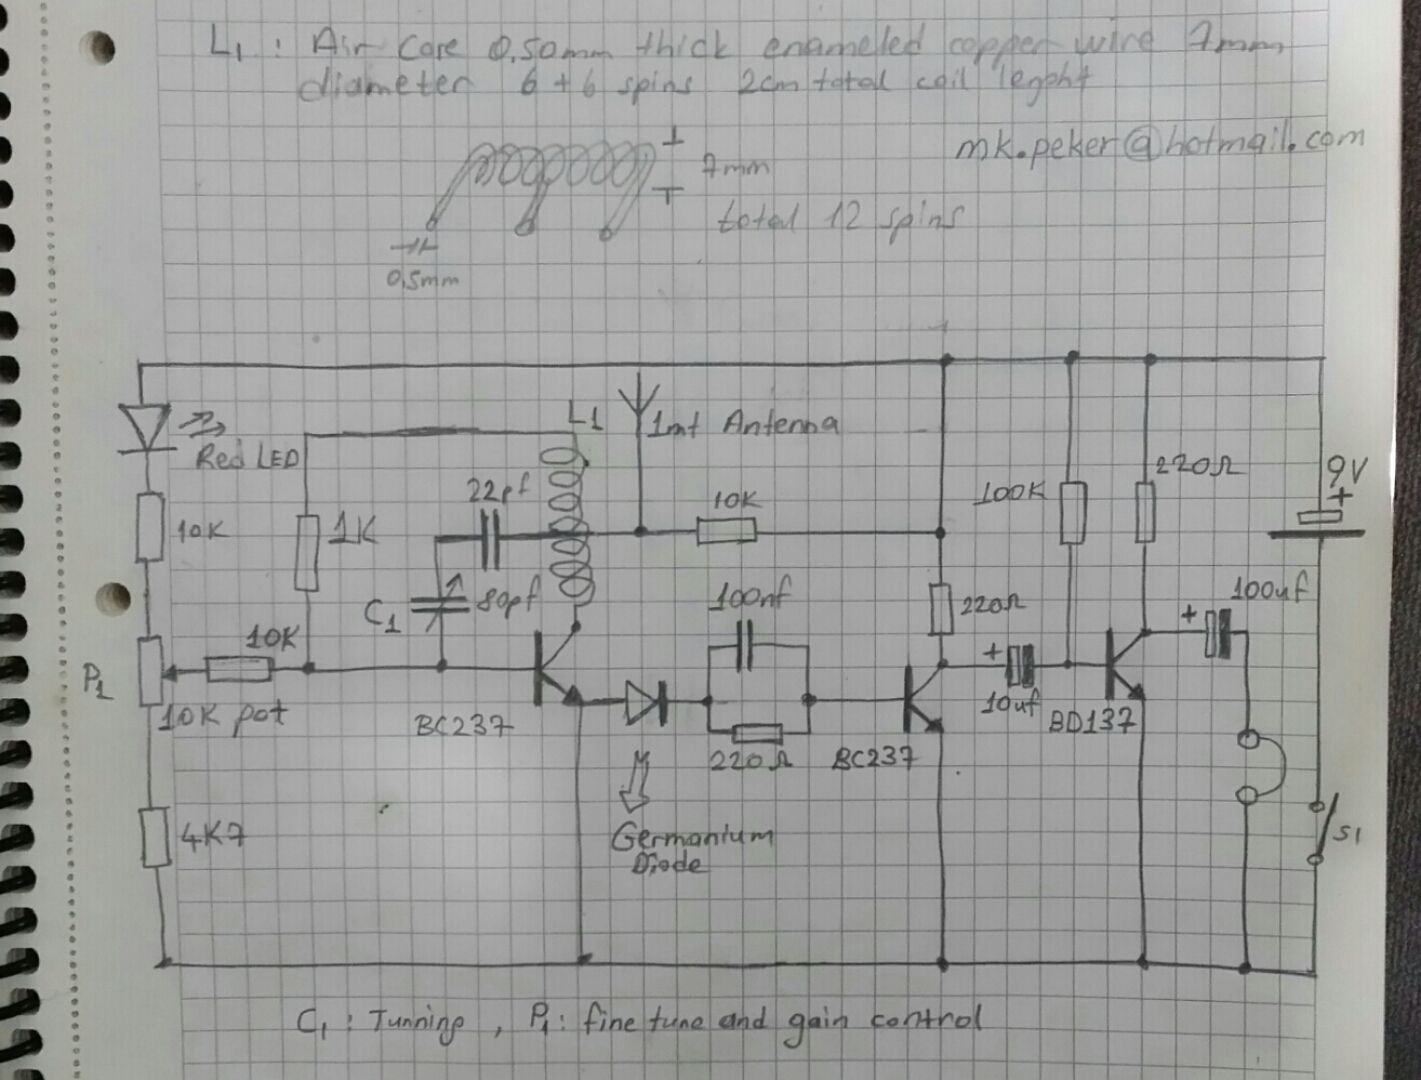 L1 : Air Core 0,50mm thick enameled copper wire 7mm
diameter 6 + 6 spins 2cm total coil leght
mk.peker@hotmail.com
7mm
total 12 spins
0,5mm
L1
1mt Antenna
Red LED
22pf
10K
100K
220Ω
9V
+
10K
1K
C1
80pf
100nf
220Ω
100uf
+
10K
P1
10K pot
BC237
220Ω
BC237
+
10uf
BD137
4K7
Germanium
Diode
S1
C1 : Tunning , P1 : fine tune and gain control